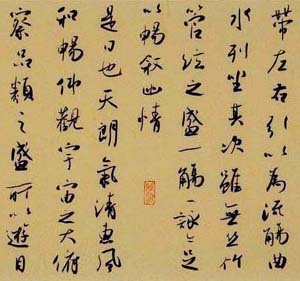 帶左右引以為流觴曲
水列坐其次雖無絲竹
管絃之盛一觴一詠亦足
以暢叙幽情
是日也天朗氣清惠風
和暢仰觀宇宙之大俯
察品類之盛所以遊目